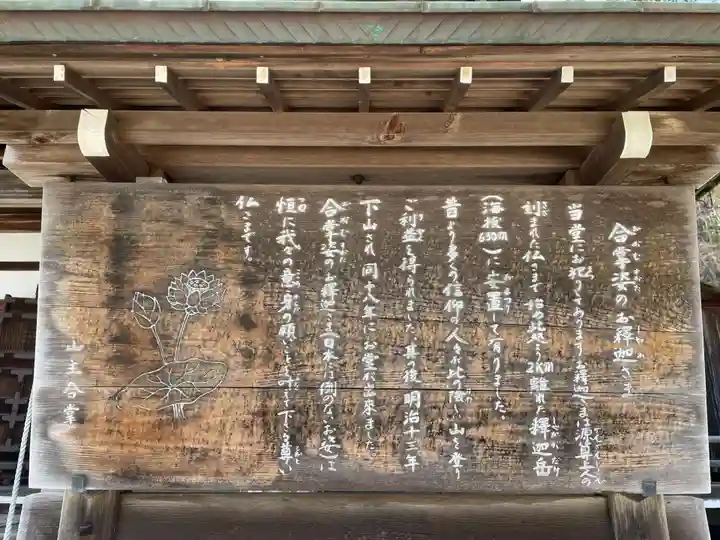 合掌姿のお釋迦さま
当堂にお祀りしてありますお釋迦さまは源算上人の
刻まれた仏さまで始め此処より2km離れた釋迦岳
(海抜630m)に安置して有りました。
昔より多くの信仰の人々が此の険しい山を登り
ご利益を得られました。其後明治十三年
下山され同十八年にお堂が出来ました。
合掌姿のお釋迦さま(日本には例のないお姿)は
恒に我々の意、身の願いをとどめて下さる尊い
仏さまです。
山主合掌